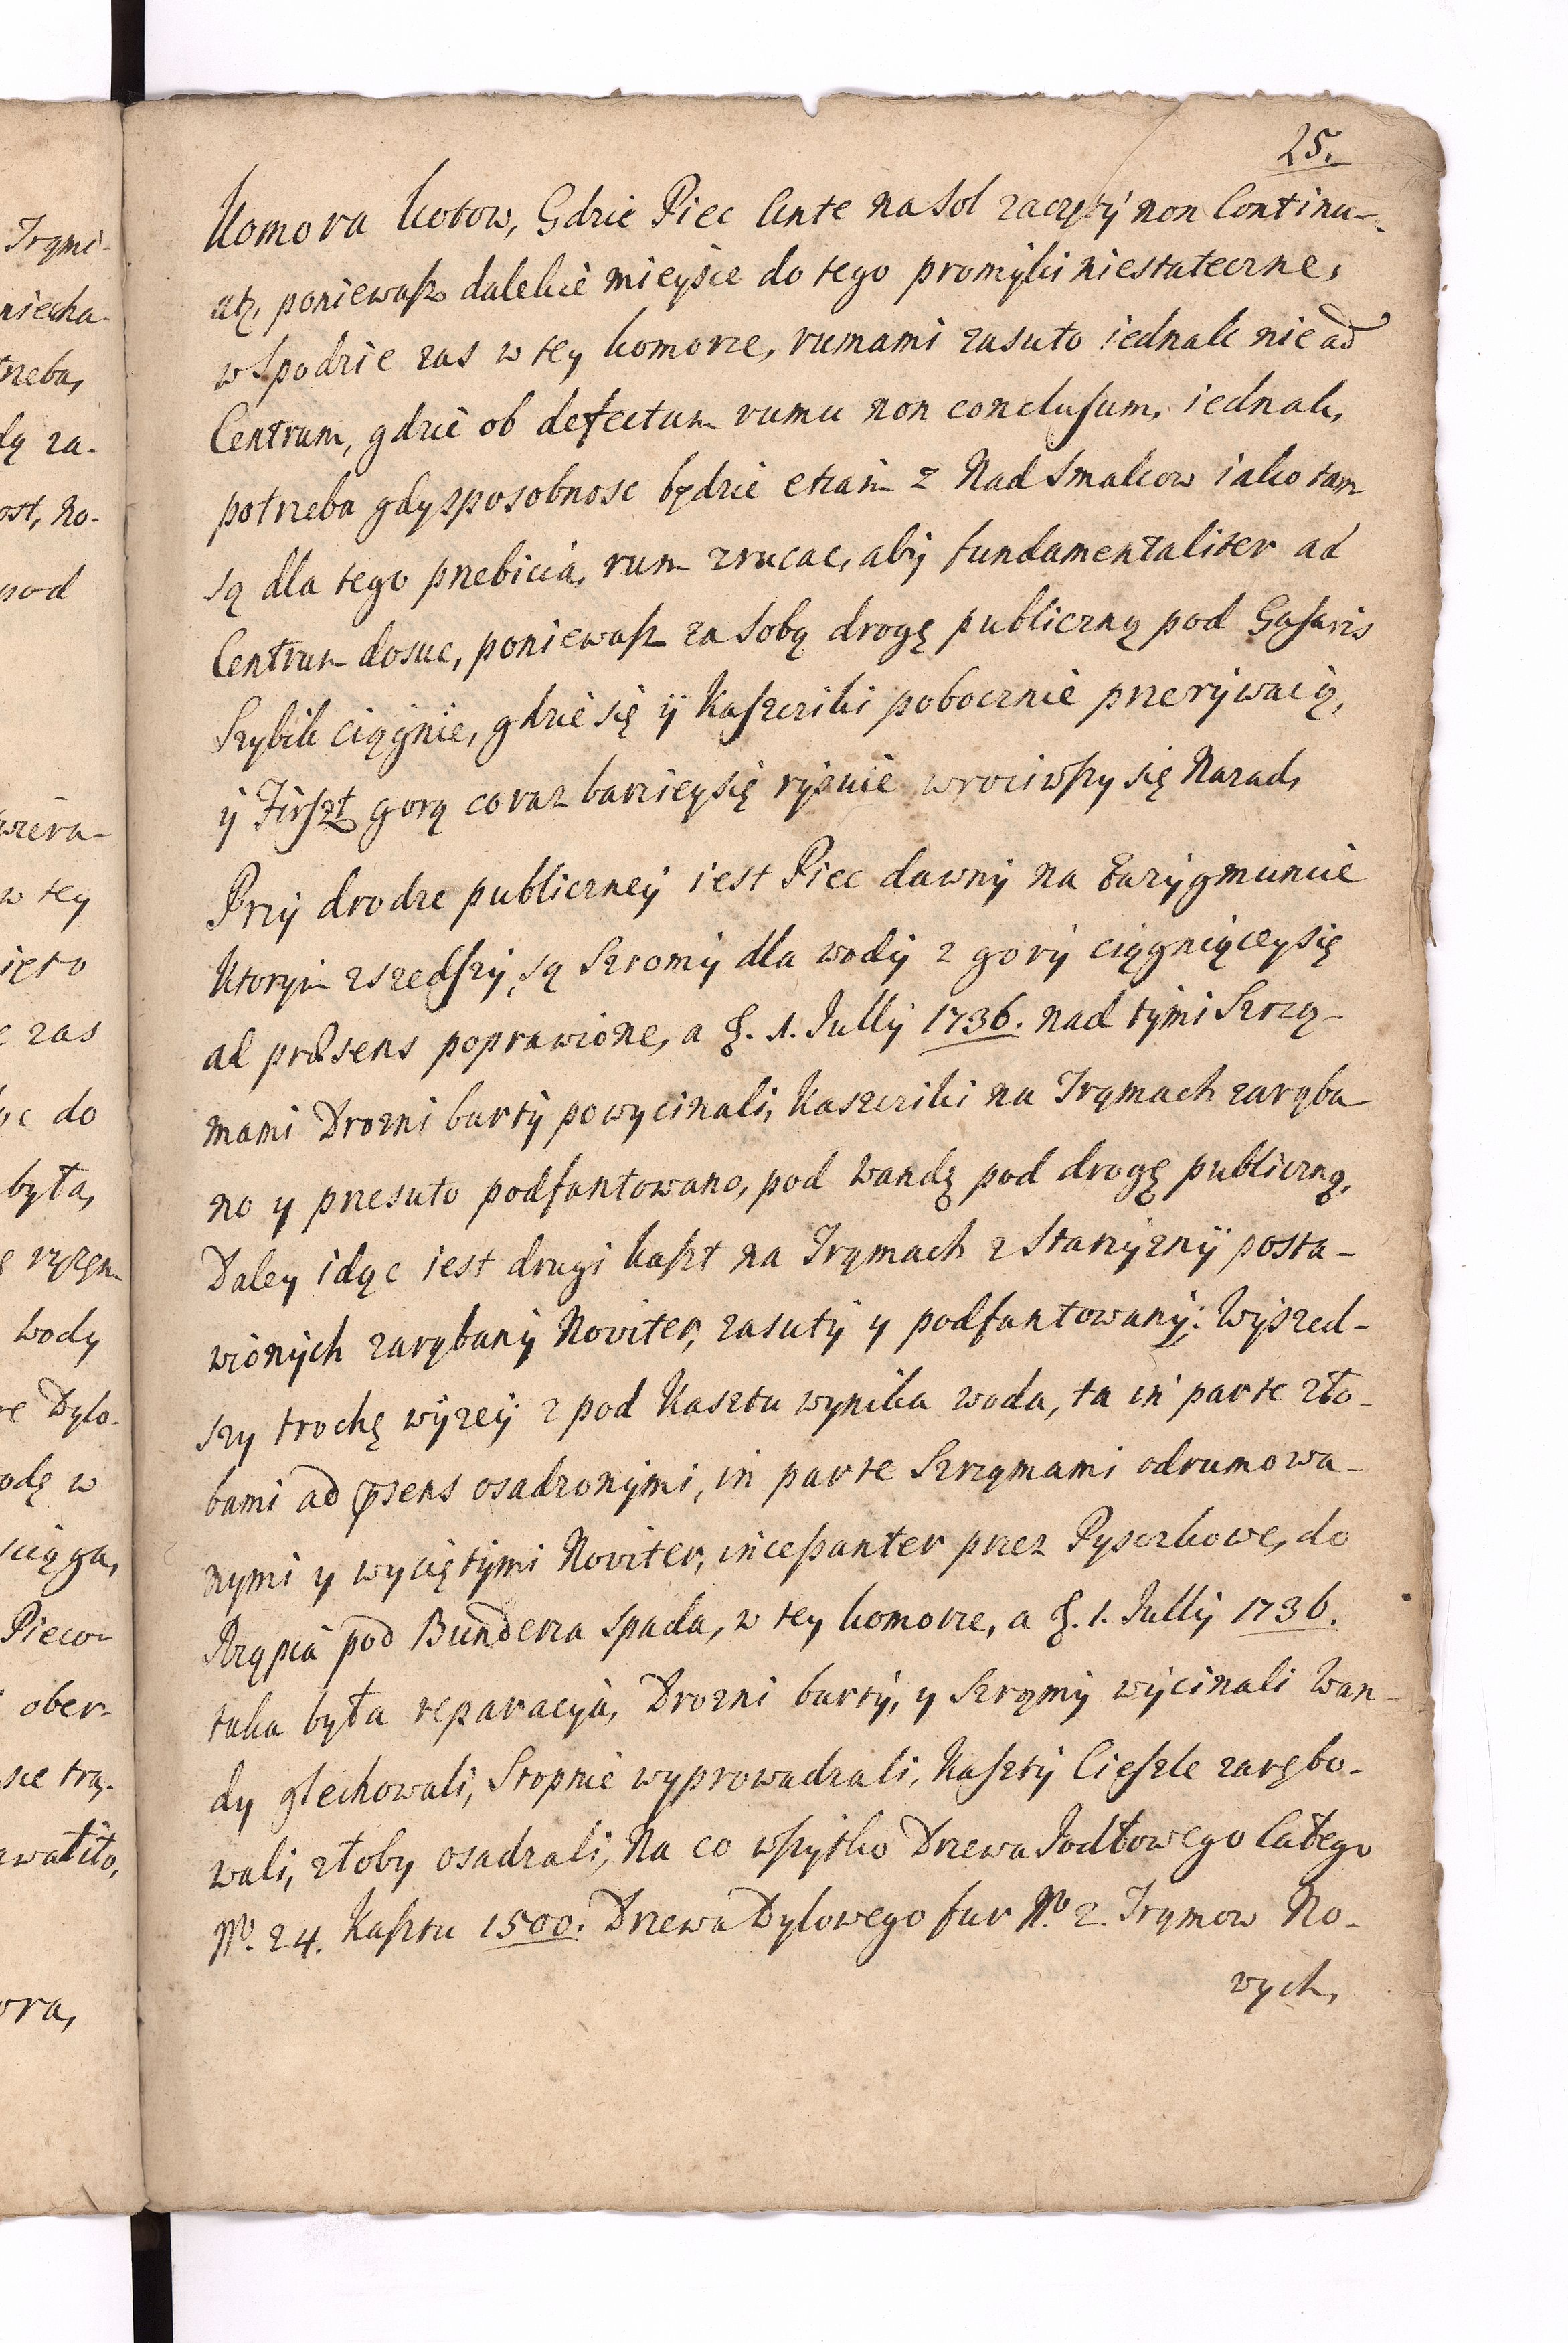 25.
Komora kotow, Gdzie Piec Ante na Sol zaczęty non Continu-
atz, poniewasz dalekie mieysce do tego promyki niestateczne,
w Spodzie zas w tey komorze, rumami zasuto iednak nie ad
Centrum, gdzie ob defectum rumu non conclusum, iednak,
potrzeba gdy zposobnosc będzie etiam z Nad Smakow iako tam
są dla tego przebicia, rum zrucac, aby fundamentaliter ad
Centrum dosuc, poniewasz za Sobą drogę publiczną pod
Szybik ciągnie, gdzie się ÿ Kaszcziki pobocznie przerywaią,
ÿ Firszt gorą coraz barziey się rysuie wrociwszy się Nazad,
Przÿ drodze publiczneÿ iest Piec dawnÿ na
Ktorym zszedszÿ, są Szromÿ dla wodÿ z gorÿ ciągniąceysię
ad præsens poprawione, a 1. Jullÿ 1736. nad tÿmi Szrzą-
mami Drozni bartÿ powycinali, Kaszcziki na Trąmach zarąba
no y przesuto podfantowano, pod Wandę pod drogę publiczną,
Daley idąc iest drugi kaszt na Trąmach z Starzyznÿ posta-
wionÿch zarąbanÿ Noviter, zasutÿ y podfantowanÿ: Wÿszed-
szy trochę wÿzeÿ z pod Kasztu wynika woda, ta in parte zło-
bami ad psens osadzonÿmi, in parte Szrzqmami odrumowa-
nymi y wyciętÿmi Noviter, incessanter przez Pysczkowe, do
Rząpia pod Bunderza spada, w tey komorze, a 1. Jullÿ 1736.
taka była reparacya, Drozni bartÿ, y Szrąmÿ wÿcinali Wan-
dy glechowali, Stopnie wyprowadzali, Kasztÿ Cieszle zarębo-
wali, złoby osadzali, Na co wszÿsko Drzewa Jodłowego Całego
No. 24. Kasztu 1500. Drzewa Dylowego fur No. 2. Trąmow No-
wych,